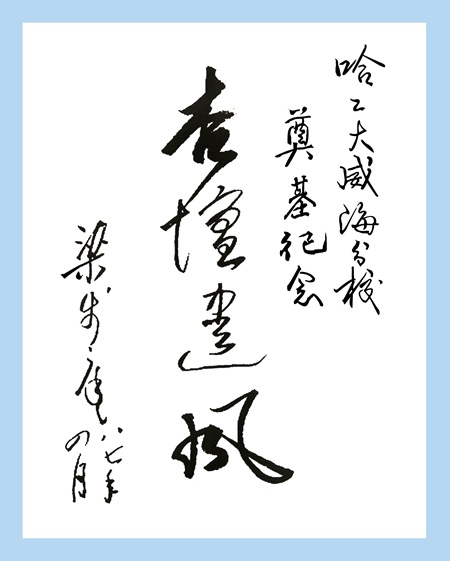 哈工大威海分校
奠基纪念
杏壇遺風
梁步庭八七年
四月